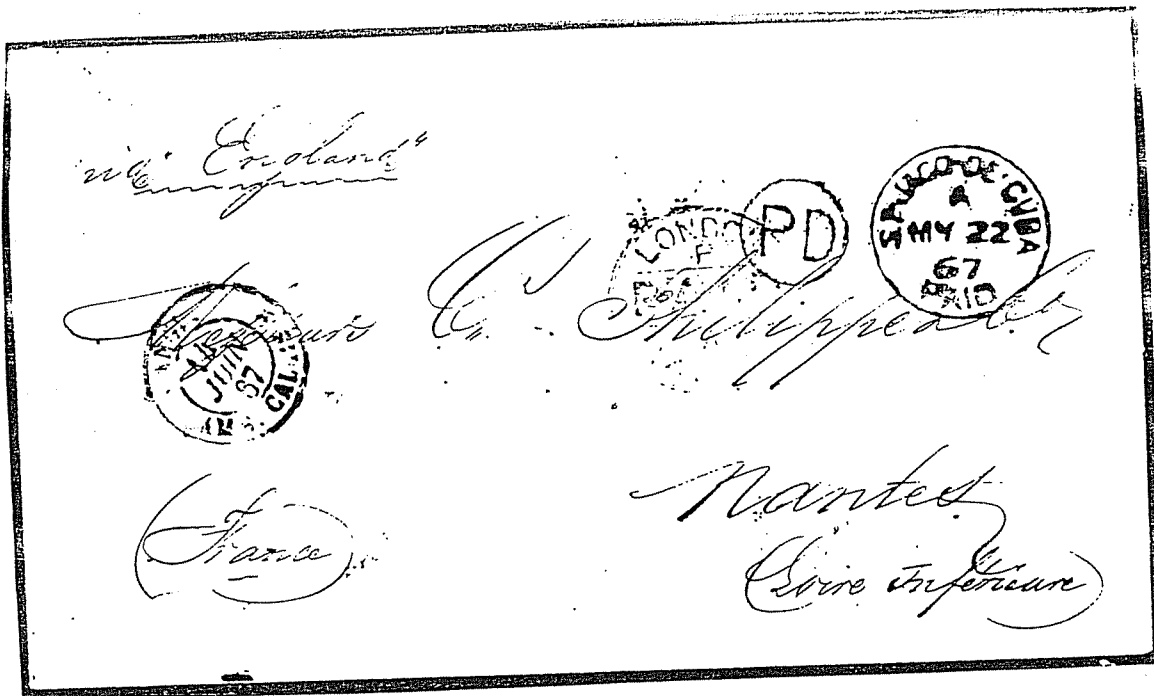 via "England"
LONDON
PD
ST JAGO-DE-CUBA
A
MY 22
67
PAID
Messieurs
Philippe
JUIN
67
AMB. CALAIS
Nantes
France
Loire Inférieure